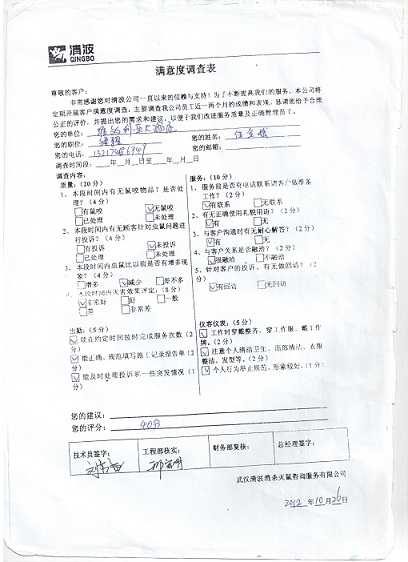 清波
QINGBO
满意度调查表
尊敬的客户：
非常感谢您对清波公司一直以来的信赖与支持！为了不断提高我们的服务，本公司将
定期开展客户满意度调查，主要调查我公司员工近一两个月的成绩和表现，恳请您给予合理
公正的评价，并提出您的需求和建议，以便于我们改进服务质量及正确管理员工。
您的单位：
您的职位：经理 您的姓名：
您的电话： 您的邮箱：
调查时间段：___年__月__日至___年__月__日
调查内容：
质量：（20分）
1、本段时间内有无鼠咬物品？是否处
理？（4分）
有鼠咬 无鼠咬
已处理 未处理
2、本段时间内有无顾客针对虫鼠问题进
行投诉？（4分）
有投诉 未投诉
已处理 未处理
3、本段时间内虫鼠比以前是否有增多现
象？（4分）
增多 减少 差不多
4、本段时间内灭害效果评定：（8分）
非常好 好 一般
差 非常差
出勤：（5分）
能在约定时间按时完成服务次数（2
分）
能正确、规范填写施工记录报告单（2
分）
能及时处理投诉和一些突发情况（1
分）
服务：（10分）
1、服务前是否有电话联系请客户做准备
工作？（2分）
有联系 无联系
2、有无正确使用礼貌用语？（2分）
有 无
3、与客户沟通时有无耐心解答？（2分）
有 无
4、与客户关系是否融洽？（2分）
很融洽 不融洽
5、针对客户的投诉，有无做回访？（2
分）
有回访 无回访
仪容仪表：（5分）
工作时穿戴整齐、穿工作服、戴工作
牌。（2分）
注意个人清洁卫生、面部清洁、衣服
整洁、发型等。（2分）
个人行为举止规范、形象较好。（1分）
您的建议：
您的评分：40分
技术员签字： 工程部核实： 财务部复核： 总经理签字：
武汉清波消杀灭鼠咨询服务有限公司
2012年10月26日